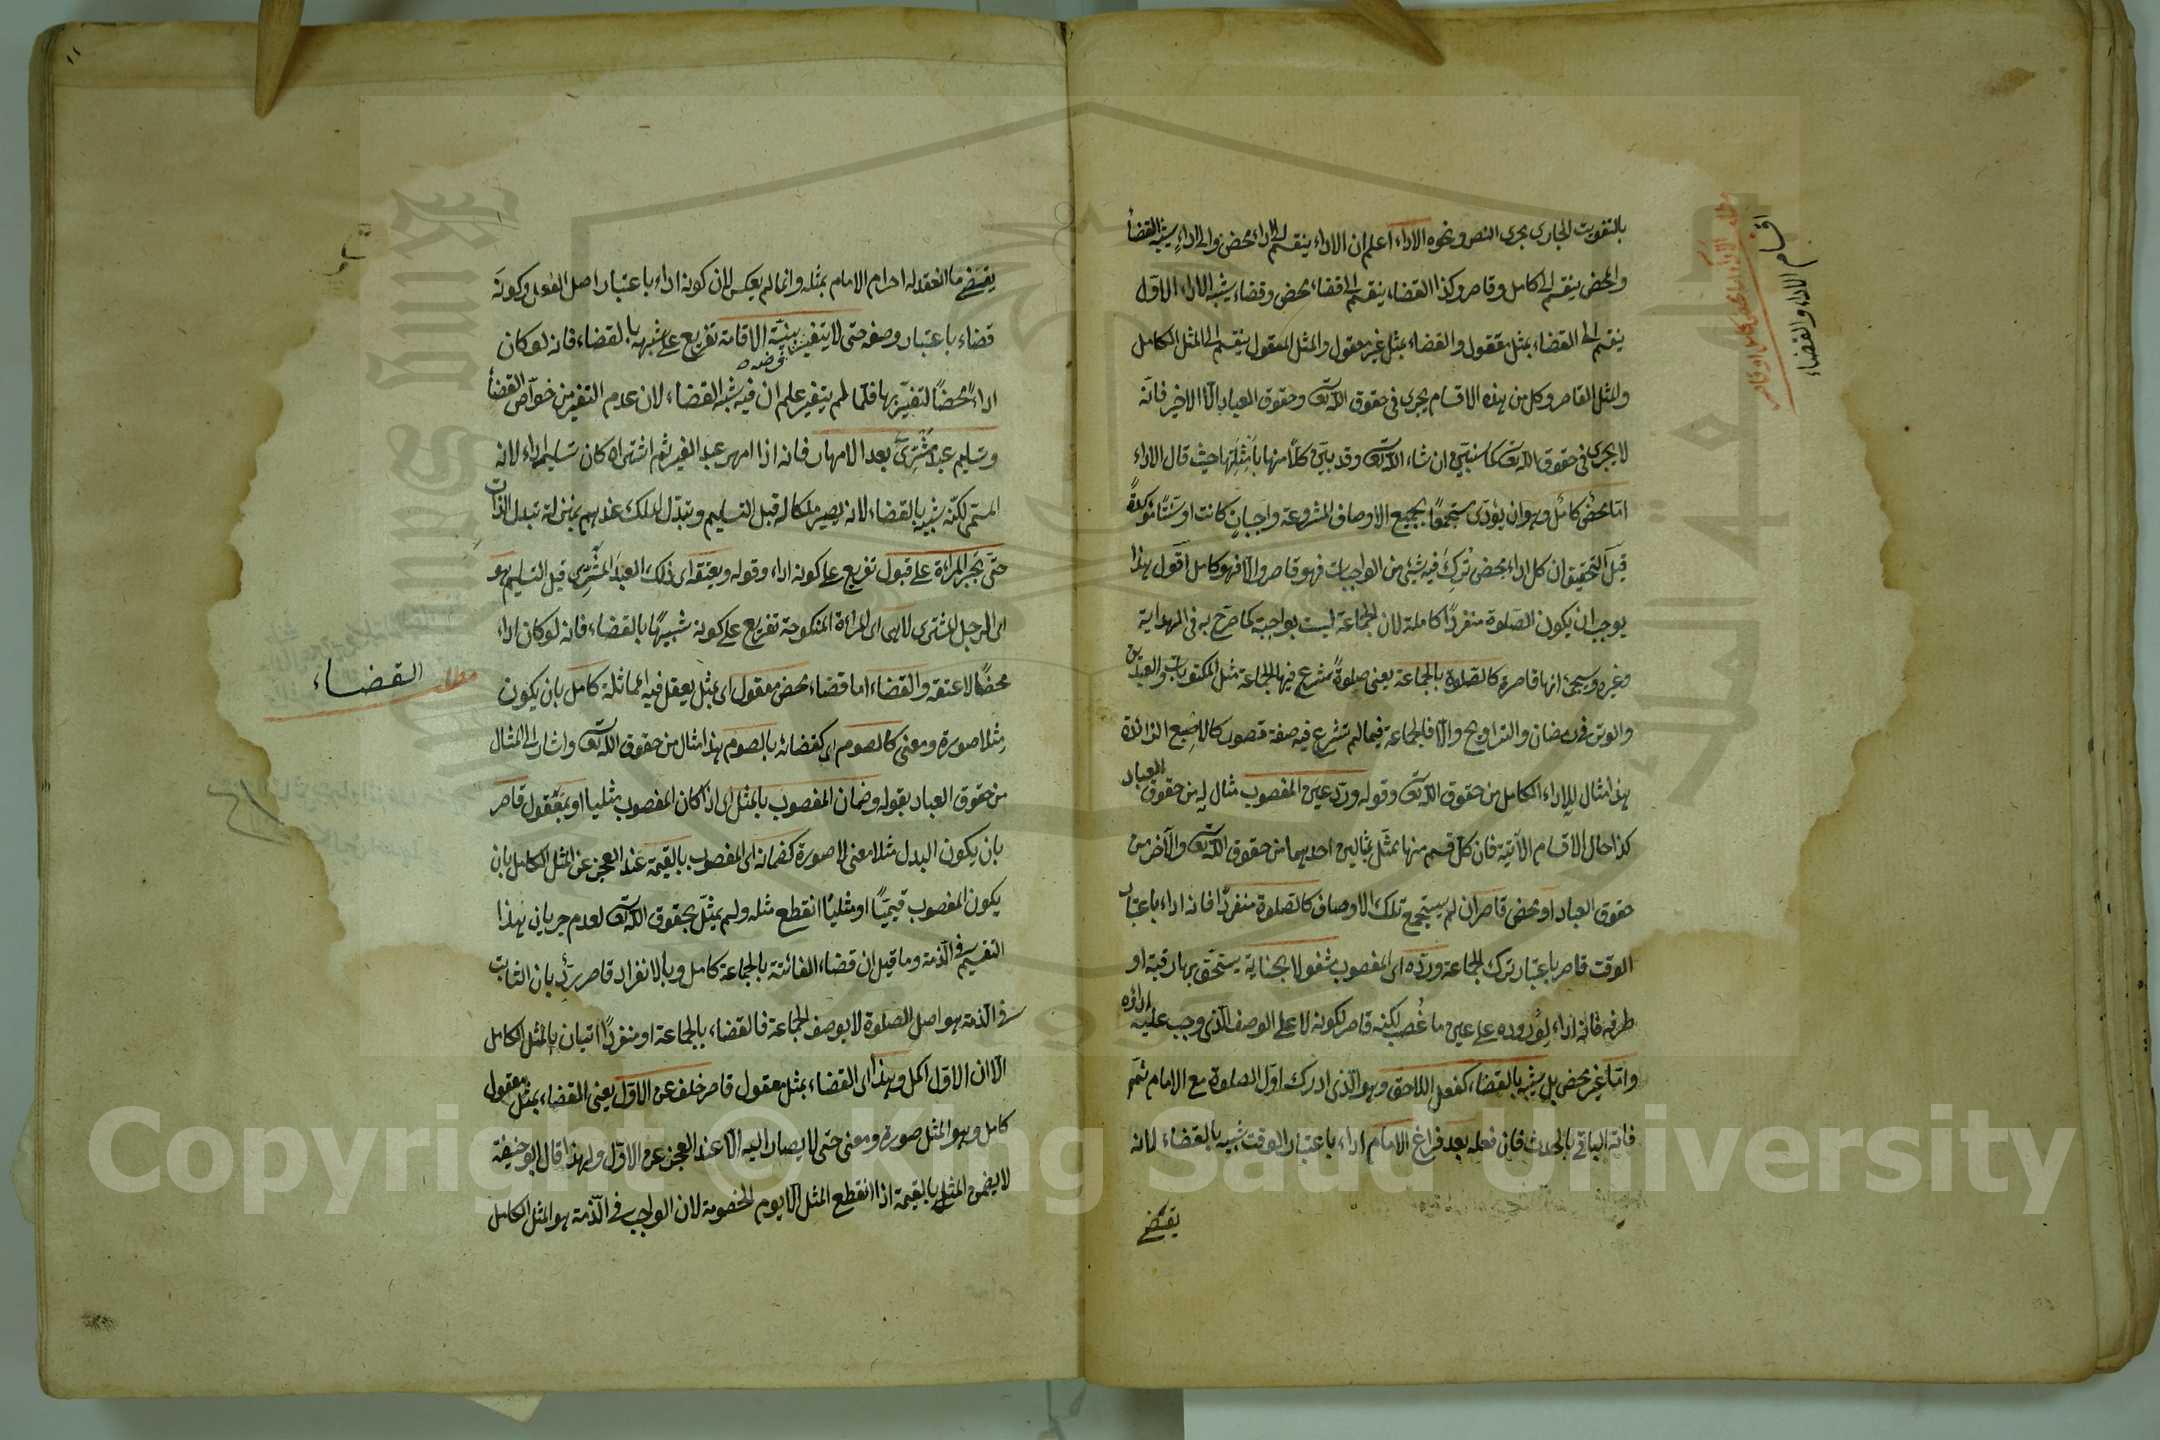 بالتفويت الجارى مجرى النص ونحوه الاداء اعلم ان الاداء ينقسم الى اداء محض والى اداء يشبه القضاء
والمحض ينقسم الى كامل وقاصر وكذا القضاء ينقسم الى قضاء محض وقضاء يشبه الاداء الاول
ينقسم الى القضاء بمثل معقول والقضاء بمثل غير معقول والمثل المعقول ينقسم الى المثل الكامل
والمثل القاصر وكل من هذه الاقسام يجرى فى حقوق الله تعا وحقوق العباد الا الاخير فانه
لا يجرى فى حقوق الله تعا كما سنبين ان شاء الله تعا وقد بين كلا منها بامثلتها حيث قال الاداء
اما محض كامل وهو ان يؤدى مستجمعا بجميع الاوصاف المشروعة واجبات كانت او سننا مؤكدة
قيل التحقيق ان كل اداء محض ترك فيه شئ من الواجبات فهو قاصر والا فهو كامل اقول هذا
يوجب ان يكون الصلوة منفردا كاملة لان الجماعة ليست بواجبة كما صرح به فى الهداية
وغيره وسيجئ انها قاصرة كالصلوة بالجماعة يعنى صلوة شرع فيها الجماعة مثل المكتوبات والعيدين
والوتر فى رمضان والتراويح والا فالجماعة فيما لم تشرع فيه صفة قصور كالاصبع الزائدة
هذا مثال للاداء الكامل من حقوق الله تعا وقوله ورد عين المغصوب مثال له من حقوق العباد
كذا حال الاقسام الآتية فان كل قسم منها يمثل بمثالين احدهما من حقوق الله تعا والآخر من
حقوق العباد او محض قاصر ان لم يستجمع تلك الاوصاف كالصلوة منفردا فانه اداء باعتبار
الوقت قاصر باعتبار ترك الجماعة ورده اى المغصوب مشغولا بجناية يستحق بها رقبته او
طرفه فانه اداء لوروده على عين ما غصب لكنه قاصر لكونه لا على الوصف الذى وجب عليه اداؤه
واما غير محض بل يشبه بالقضاء كفعل اللاحق وهو الذى ادرك اول الصلوة مع الامام ثم
فاته الباقى بالحدث فان فعله بعد فراغ الامام اداء باعتبار الوقت شبيه بالقضاء لانه
يقضى
اقسام الاداء والقضاء
يقضى ما انعقد له احرام الامام بمثله وانما لم يعكس لان كونه اداء باعتبار اصل الفعل وكونه
قضاء باعتبار وصفه حتى لا يتغير بنية الاقامة تفريع على شبهه بالقضاء فانه لو كان
فرضه
اداء محضا لتغير بها فلما لم يتغير علم ان فيه شبه القضاء لان عدم التغير من خواص القضاء
وتسليم عبد مشترى بعد الامهار فانه اذا امهر عبد الغير ثم اشتراه كان تسليمه اداء لانه
المسمى لكنه شبيه بالقضاء لانه يصير ملكا له قبل التسليم وتبدل الملك عندهم بمنزلة تبدل الذات
حتى تجبر المراة على قبوله تفريع على كونه اداء وقوله ويعتقه اى ذلك العبد المشترى قبل التسليم هو
اى الرجل المشترى لا هى اى المراة المنكوحة تفريع على كونه شبيها بالقضاء فانه لو كان اداء
محضا لاعتقه والقضاء اما قضاء محض معقول اى بمثل يعقل فيه المماثلة كامل بان يكون
مثلا صورة ومعنى كالصوم اى كقضائه بالصوم هذا مثال من حقوق الله تعا واشار الى المثال
من حقوق العباد بقوله وضمان المغصوب بالمثل اى اذا كان المغصوب مثليا او بمعقول قاصر
بان يكون البدل مثلا معنى لا صورة كضمانه اى المغصوب بالقيمة عند العجز عن المثل الكامل بان
يكون المغصوب قيميا او مثليا انقطع مثله ولم يمثل بحقوق الله تعا لعدم جريان هذا
التقسيم فى الذمة وما قيل ان قضاء الفائتة بالجماعة كامل وبالانفراد قاصر يرد بان الثابت
فى الذمة هو اصل الصلوة لا بوصف الجماعة فالقضاء بالجماعة او منفردا اتيان بالمثل الكامل
الا ان الاول اكمل وهذا اى القضاء بمثل معقول قاصر خلف عن الاول يعنى القضاء بمثل معقول
كامل وهو المثل صورة ومعنى حتى لا يصار اليه الا عند العجز عن الاول ولهذا قال ابو حنيفة
لا يضمن المثلى بالقيمة اذا انقطع المثل الا يوم الخصومة لان الواجب فى الذمة هو المثل الكامل
مطلب القضاء
١١
Copyright © King Saud University
King Saud University